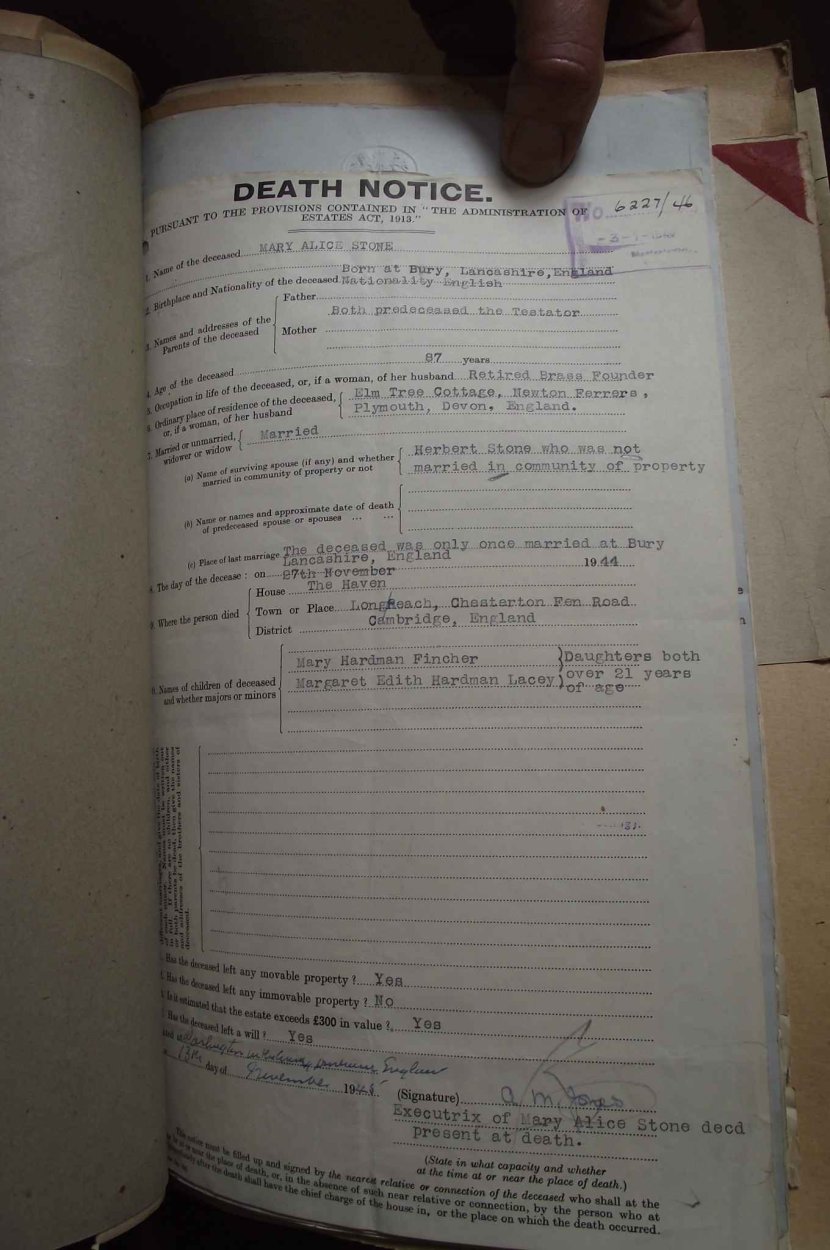 DEATH NOTICE.
PURSUANT TO THE PROVISIONS CONTAINED IN "THE ADMINISTRATION OF
ESTATES ACT, 1913."
No. 6227/46
1. Name of the deceased MARY ALICE STONE
Born at Bury, Lancashire, England
2. Birthplace and Nationality of the deceased Nationality English
3. Names and addresses of the Parents of the deceased
Father
Both predeceased the Testator
Mother
4. Age of the deceased 87 years
5. Occupation in life of the deceased, or, if a woman, of her husband Retired Brass Founder
6. Ordinary place of residence of the deceased, or, if a woman, of her husband
Elm Tree Cottage, Newton Ferrers,
Plymouth, Devon, England.
7. Married or unmarried, widower or widow Married
(a) Name of surviving spouse (if any) and whether married in community of property or not
Herbert Stone who was not
married in community of property
(b) Name or names and approximate date of death
of predeceased spouse or spouses ... ...
(c) Place of last marriage The deceased was only once married at Bury
Lancashire, England
8. The day of the decease: on 27th November 1944
9. Where the person died
House The Haven
Town or Place Long Reach, Chesterton Fen Road
District Cambridge, England
Names of children of deceased
and whether majors or minors
Mary Hardman Fincher
Margaret Edith Hardman Lacey
Daughters both
over 21 years
of age
Has the deceased left any movable property? Yes
Has the deceased left any immovable property? No
Is it estimated that the estate exceeds £300 in value? Yes
Has the deceased left a will? Yes
England
13th day of November 1945
(Signature) A M. Jones
Executrix of Mary Alice Stone decd
present at death.
(State in what capacity and whether
at the time at or near the place of death.)
This notice must be filled up and signed by the nearest relative or connection of the deceased who shall at the
or near the place of death, or, in the absence of such near relative or connection, by the person who at
immediately after the death shall have the chief charge of the house in, or the place on which the death occurred.